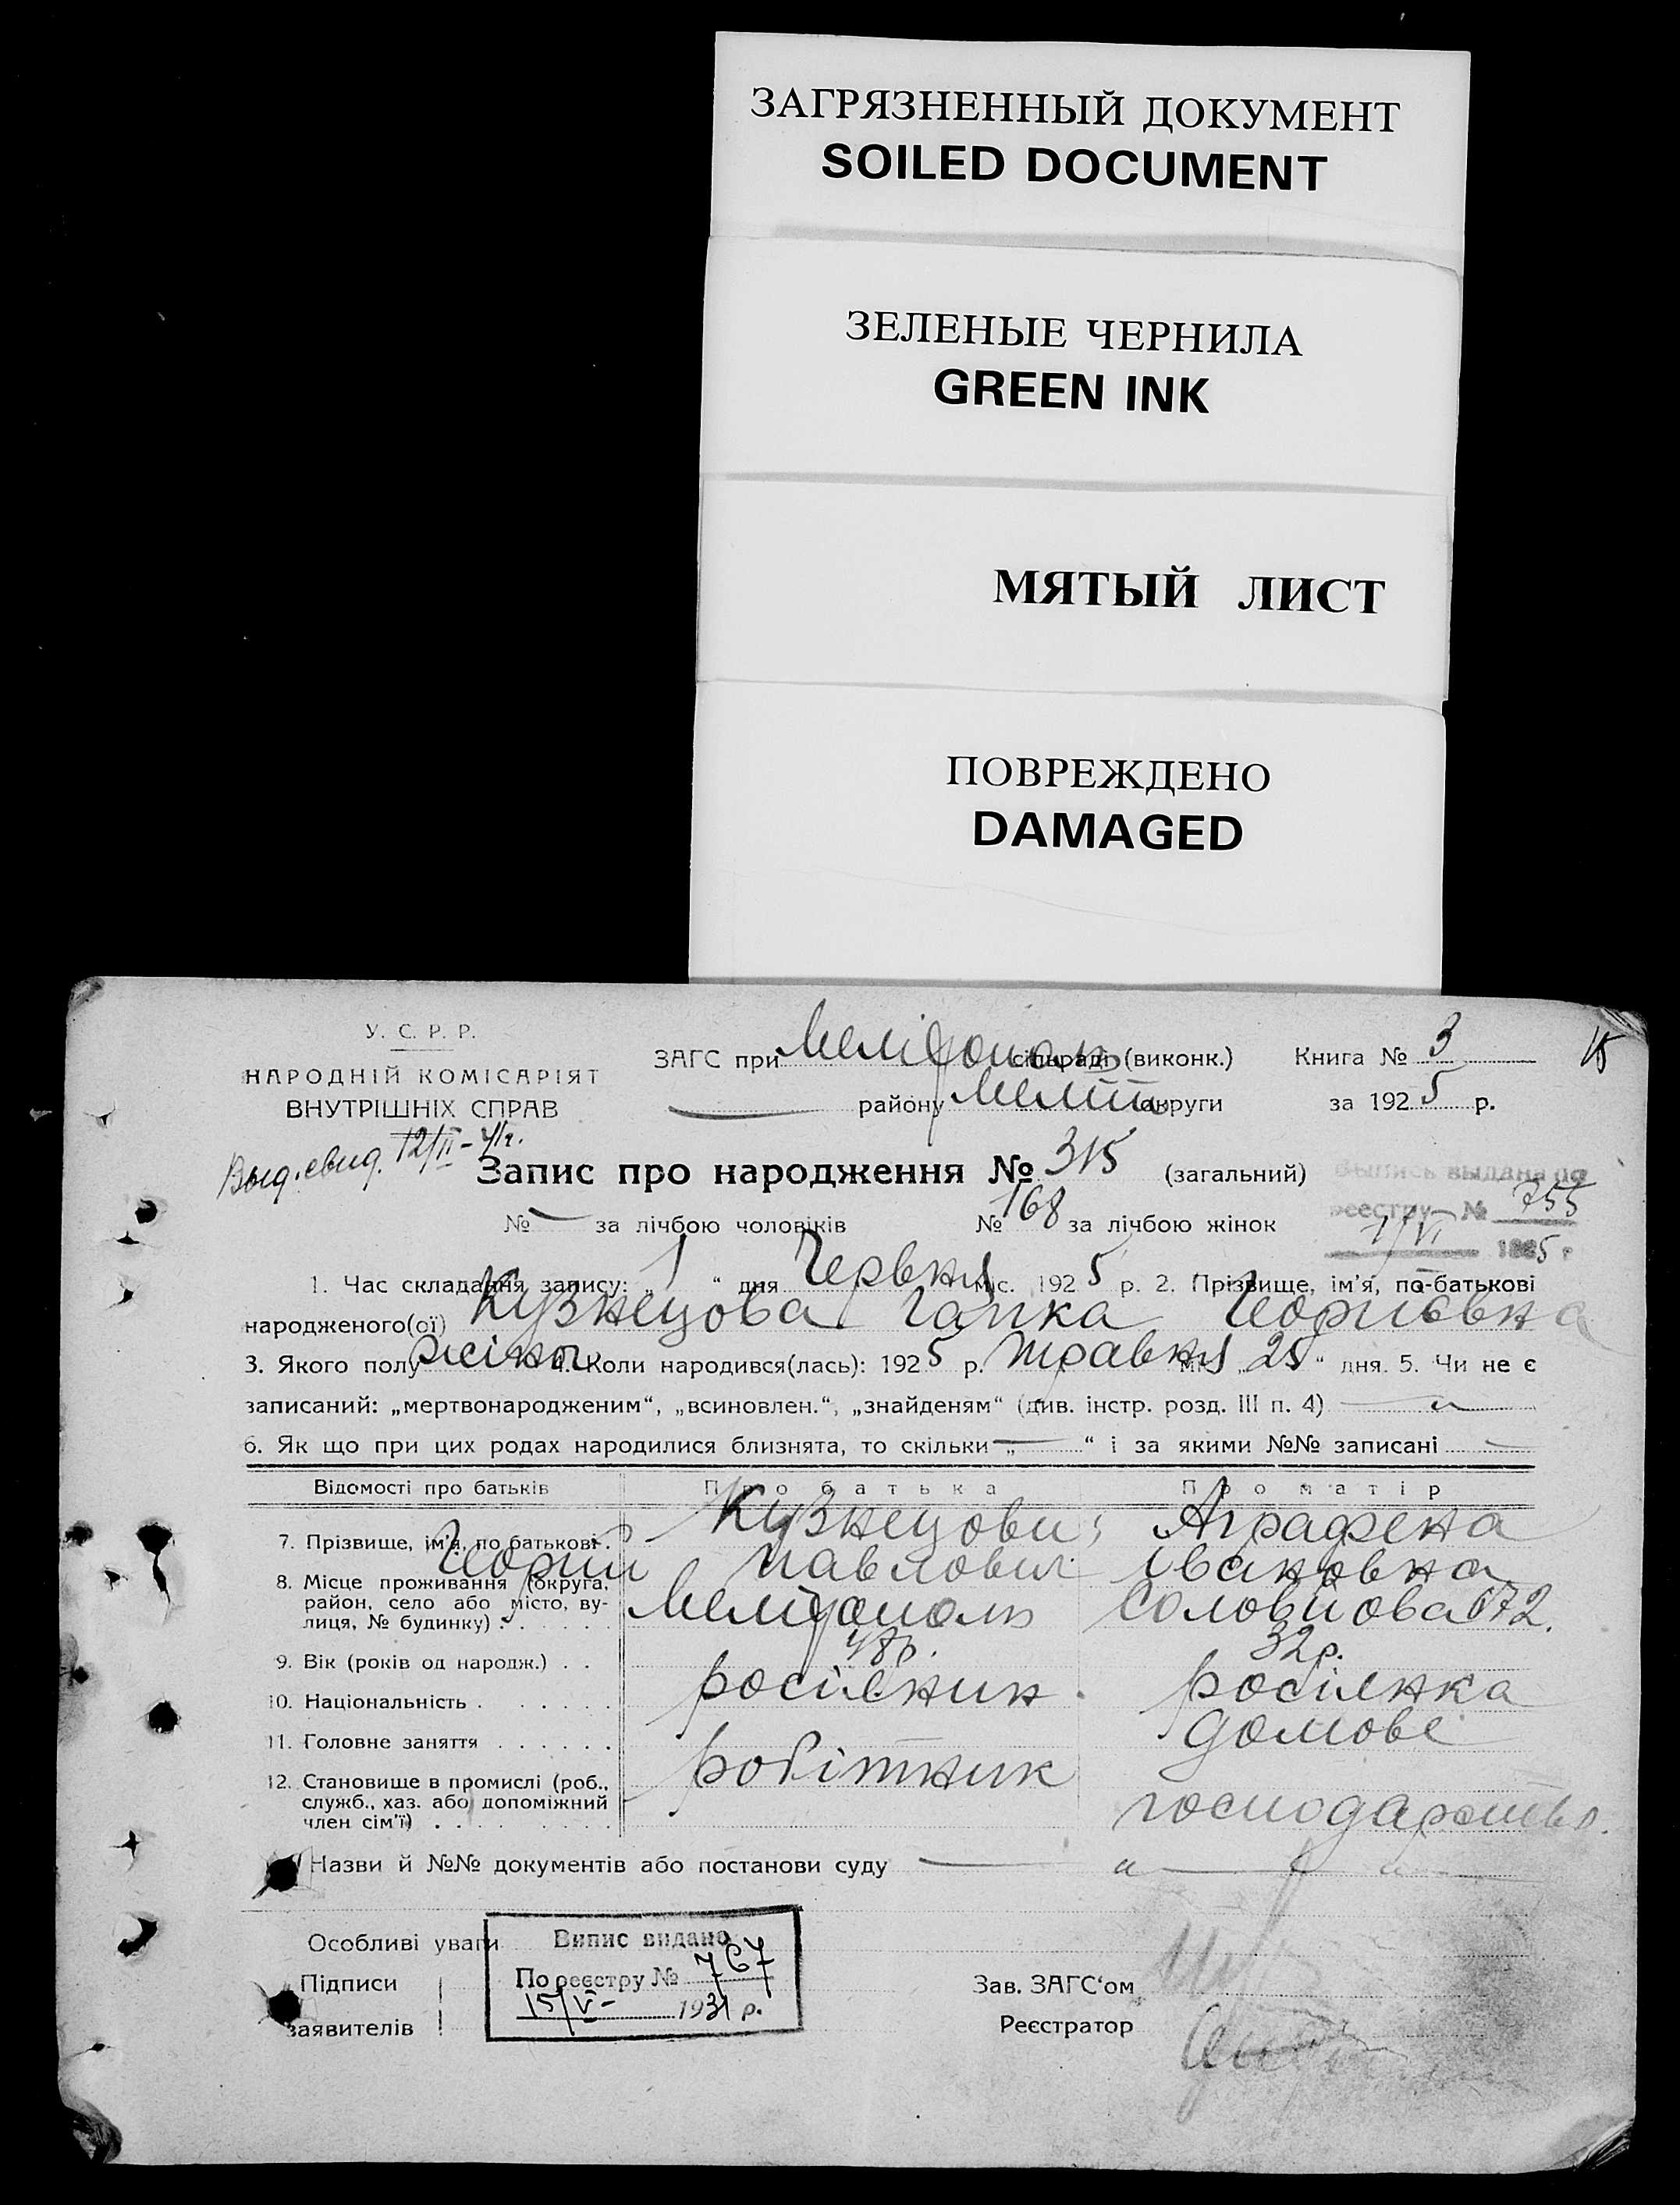 ЗАГРЯЗНЕННЫЙ ДОКУМЕНТ
SOILED DOCUMENT
ЗЕЛЕНЫЕ ЧЕРНИЛА
GREEN INK
МЯТЫЙ ЛИСТ
ПОВРЕЖДЕНО
DAMAGED
У. С. Р. Р.
НАРОДНІЙ КОМІСАРІЯТ
ВНУТРІШНІХ СПРАВ
ЗАГС при Мелітополь сільраді (виконк.) Книга № 3
району Меліт. округи за 1925 р.
Выд. свид. 12/II-41г.
Запис про народження № 315 (загальний)
Выпись выдана по
реестру № 755
№ — за лічбою чоловіків № 168 за лічбою жінок
1. Час складання запису: „1“ дня Червня міс. 1925 р. 2. Прізвище, ім’я, по-батькові
народженого(ої) Кузнецова Гапка
3. Якого полу жіноч. 4. Коли народився(лась): 1925 р. травня м. „25“ дня. 5. Чи не є
записаний: „мертвонародженим“, „всиновлен.“, „знайденям“ (див. інстр. розд. III п. 4) —
6. Як що при цих родах народилися близнята, то скільки „—“ і за якими №№ записані —
Відомості про батьків Про батька Про матір
7. Прізвище, ім’я, по батькові. Кузнецови; Аграфена
Павлович Івановна
8. Місце проживання (округа,
район, село або місто, вулиця, № будинку) Мелітополь 172.
9. Вік (років од народж.) 48р. 32р.
10. Національність росіянин росіянка
11. Головне заняття домове
робітник
12. Становище в промислі (роб.,
служб., хаз. або допоміжний
член сім’ї) господарство.
Назви й №№ документів або постанови суду —
Особливі уваги
Випис видано
По реєстру № 767
15/V- 1931 р.
Підписи
заявителів
Зав. ЗАГС‘ом
Реєстратор